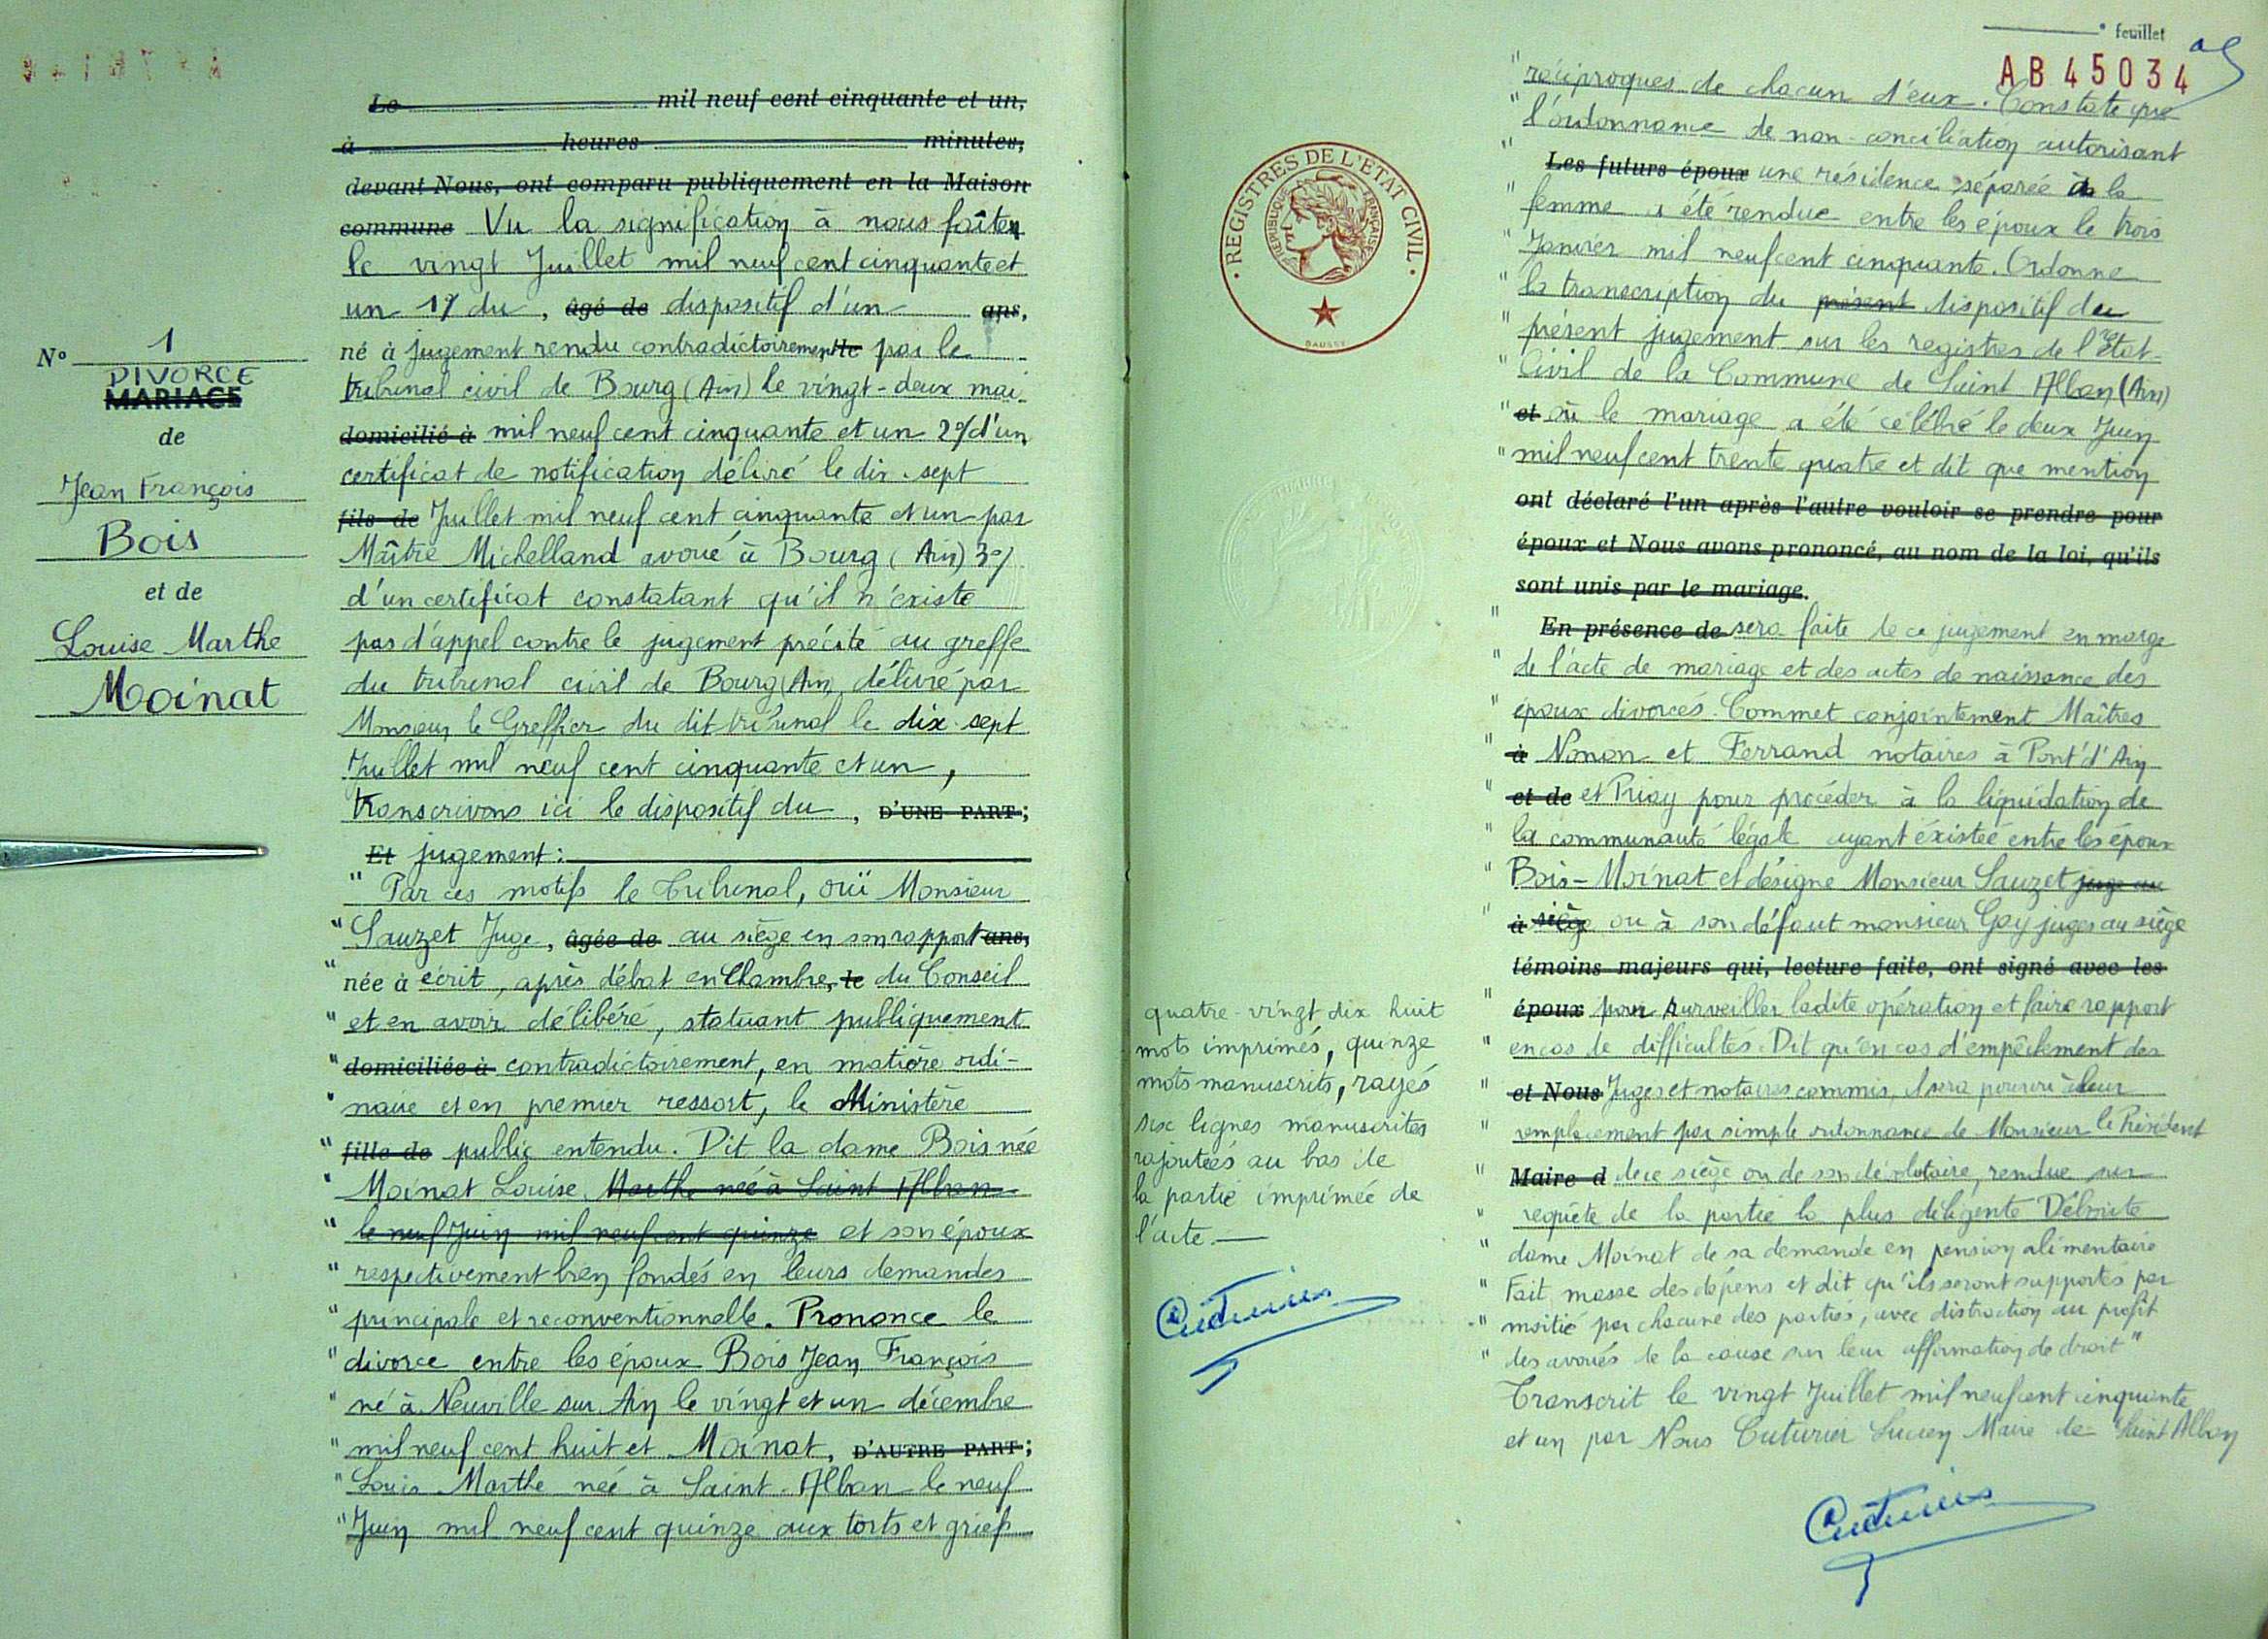 N° 1
DIVORCE
MARIAGE
de
Jean François
Bois
et de
Louise Marthe
Moinat
Le mil neuf cent cinquante et un,
à heures minutes,
devant Nous, ont comparu publiquement en la Maison
commune Vu la signification à nous faite
le vingt Juillet mil neuf cent cinquante et
un 1°/ du , âgé de dispositif d'un ans,
né à jugement rendu contradictoirement le par le
tribunal civil de Bourg (Ain) le vingt-deux mai
domicilié à mil neuf cent cinquante et un 2°/ d'un
certificat de notification délivré le dix-sept
fils de Juillet mil neuf cent cinquante et un par
Maître Michelland avoué à Bourg (Ain) 3°/
d'un certificat constatant qu'il n'existe
pas d'appel contre le jugement précité au greffe
du tribunal civil de Bourg (Ain) délivré par
Monsieur le Greffier du dit tribunal le dix-sept
Juillet mil neuf cent cinquante et un,
transcrivons ici le dispositif du , D'UNE PART ;
Et jugement :
" Par ces motifs le Tribunal, ouï Monsieur
" Sauzet Juge, âgée de au siège en son rapport ans,
" née à écrit, après débat en Chambre, le du Conseil
" et en avoir délibéré, statuant publiquement
" domiciliée à contradictoirement, en matière ordi-
" naire et en premier ressort, le Ministère
" fille de public entendu. Dit la dame Bois née
" Moinat Louise Marthe née à Saint Alban
" le neuf Juin mil neuf cent quinze et son époux
" respectivement bien fondés en leurs demandes
" principale et reconventionnelle. Prononce le
" divorce entre les époux Bois Jean François
" né à Neuville sur Ain le vingt et un décembre
" mil neuf cent huit et Moinat, D'AUTRE PART ;
" Louis Marthe née à Saint-Alban le neuf
" Juin mil neuf cent quinze aux torts et griefs
REGISTRES DE L'ÉTAT CIVIL
RÉPUBLIQUE FRANÇAISE
quatre-vingt dix huit
mots imprimés, quinze
mots manuscrits, rayés
six lignes manuscrites
rajoutées au bas de
la partie imprimée de
l'acte.
° feuillet
AB45034
" réciproques de chacun d'eux. Constate que
" l'ordonnance de non-conciliation autorisant
" Les futurs époux une résidence séparée à la
" femme a été rendue entre les époux le trois
" Janvier mil neuf cent cinquante. Ordonne
" la transcription du présent dispositif du
" présent jugement sur les registres de l'Etat-
" Civil de la Commune de Saint Alban (Ain)
" et où le mariage a été célébré le deux Juin
" mil neuf cent trente quatre et dit que mention
ont déclaré l'un après l'autre vouloir se prendre pour
époux et Nous avons prononcé, au nom de la loi, qu'ils
sont unis par le mariage.
" En présence de sera faite de ce jugement en marge
" de l'acte de mariage et des actes de naissance des
" époux divorcés. Commet conjointement Maîtres
" à Nonon et Ferrand notaires à Pont d'Ain
" et de et Priay pour procéder à la liquidation de
" la communauté légale ayant éxistée entre les époux
" Bois-Moinat et désigne Monsieur Sauzet juge au
" à siège ou à son défaut monsieur Gay juges au siège
témoins majeurs qui, lecture faite, ont signé avec les
" époux pour surveiller ladite opération et faire rapport
" en cas de difficultés. Dit qu'en cas d'empêchement des
" et Nous Juges et notaires commis, il sera pourvu à leur
" remplacement par simple ordonnance de Monsieur le Président
" Maire d de ce siège ou de son dévolutaire, rendue sur
" requête de la partie la plus diligente Déboute
" dame Moinat de sa demande en pension alimentaire
" Fait masse des dépens et dit qu'ils seront supportés par
" moitié par chacune des parties, avec distraction au profit
" des avoués de la cause sur leur affirmation de droit "
Transcrit le vingt Juillet mil neuf cent cinquante
et un par Nous Cuturier Lucien Maire de Saint Alban